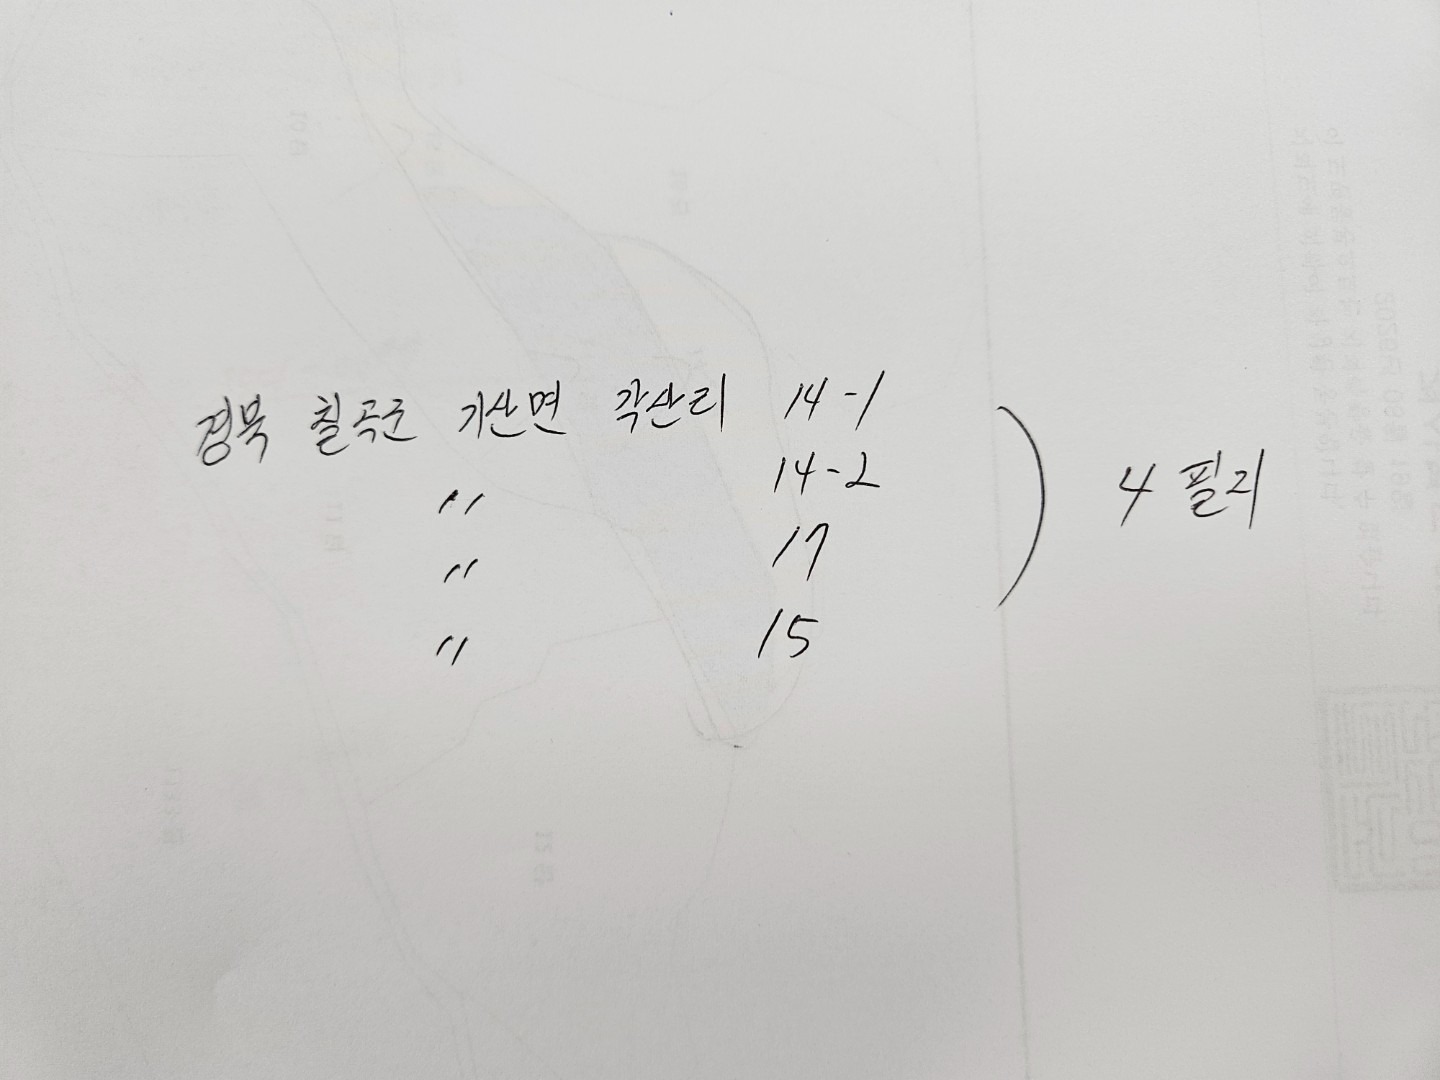 경북 칠곡군 기산면 각산리 14-1
〃 14-2
〃 17
〃 15
4 필지